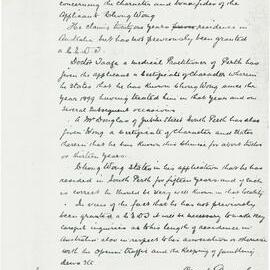 concerning the character and bonafides of the
Applicant Chong Wong
He claims twenty one years residence in
Australia but has not previously been granted
a C.E.D.T.
Doctor a medical Practitioner of Perth
has given the applicant a Certificate of Character wherein
he states that he has known Chong Wong since the
year 1899 having treated him in that year and on
several subsequent occasions
A Mr Douglas of Street South Perth has also
given Wong a certificate of Character and states
therein that he has known this Chinese for about twelve
or thirteen years.
Chong Wong states in his application that he has
resided in South Perth for fifteen years and if such
is correct he should be very well known in that locality
In view of the fact that he has not previously
been granted a C.E.D.T. it will be necessary to make very
careful inquiries as to his length of residence in
Australia also in respect to his association or otherwise
with the Opium Traffic and the Keeping of gambling
dens etc